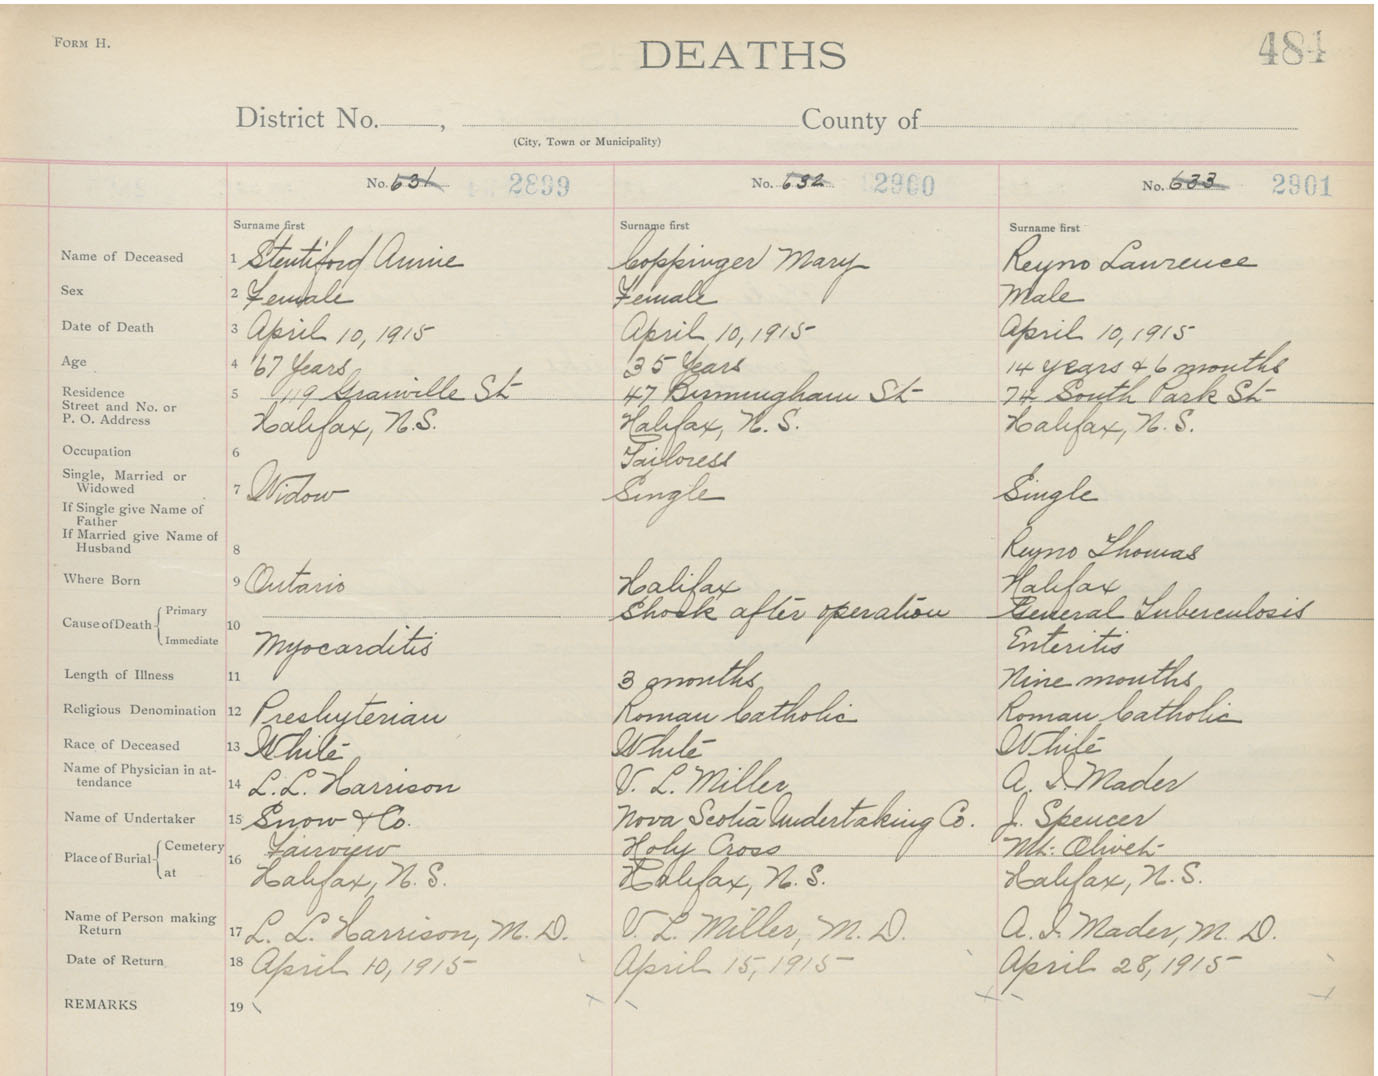 FORM H.
DEATHS
484
District No. , County of
(City, Town or Municipality)
No. 631 2899 No. 632 2900 No. 633 2901
Surname first Surname first Surname first
Name of Deceased 1 Stentiford Annie Coppinger Mary Reyno Lawrence
Sex 2 Female Female Male
Date of Death 3 April 10, 1915 April 10, 1915 April 10, 1915
Age 4 67 Years 35 Years 14 years & 6 months
Residence Street and No. or P. O. Address 5 119 Granville St 47 Birmingham St 74 South Park St
Halifax, N.S. Halifax, N.S. Halifax, N.S.
Occupation 6 Tailoress
Single, Married or Widowed 7 Widow Single Single
If Single give Name of Father
If Married give Name of Husband 8 Reyno Thomas
Where Born 9 Ontario Halifax Halifax
Cause of Death 10 Primary Shock after operation General Tuberculosis
Immediate Myocarditis Enteritis
Length of Illness 11 3 months Nine months
Religious Denomination 12 Presbyterian Roman Catholic Roman Catholic
Race of Deceased 13 White White White
Name of Physician in attendance 14 L. L. Harrison V. L. Miller A. I. Mader
Name of Undertaker 15 Snow & Co. Nova Scotia Undertaking Co. J. Spencer
Place of Burial 16 Cemetery Fairview Holy Cross Mt. Olivet
at Halifax, N.S. Halifax, N.S. Halifax, N.S.
Name of Person making Return 17 L. L. Harrison, M.D. V. L. Miller, M.D. A. I. Mader, M.D.
Date of Return 18 April 10, 1915 April 15, 1915 April 28, 1915
REMARKS 19